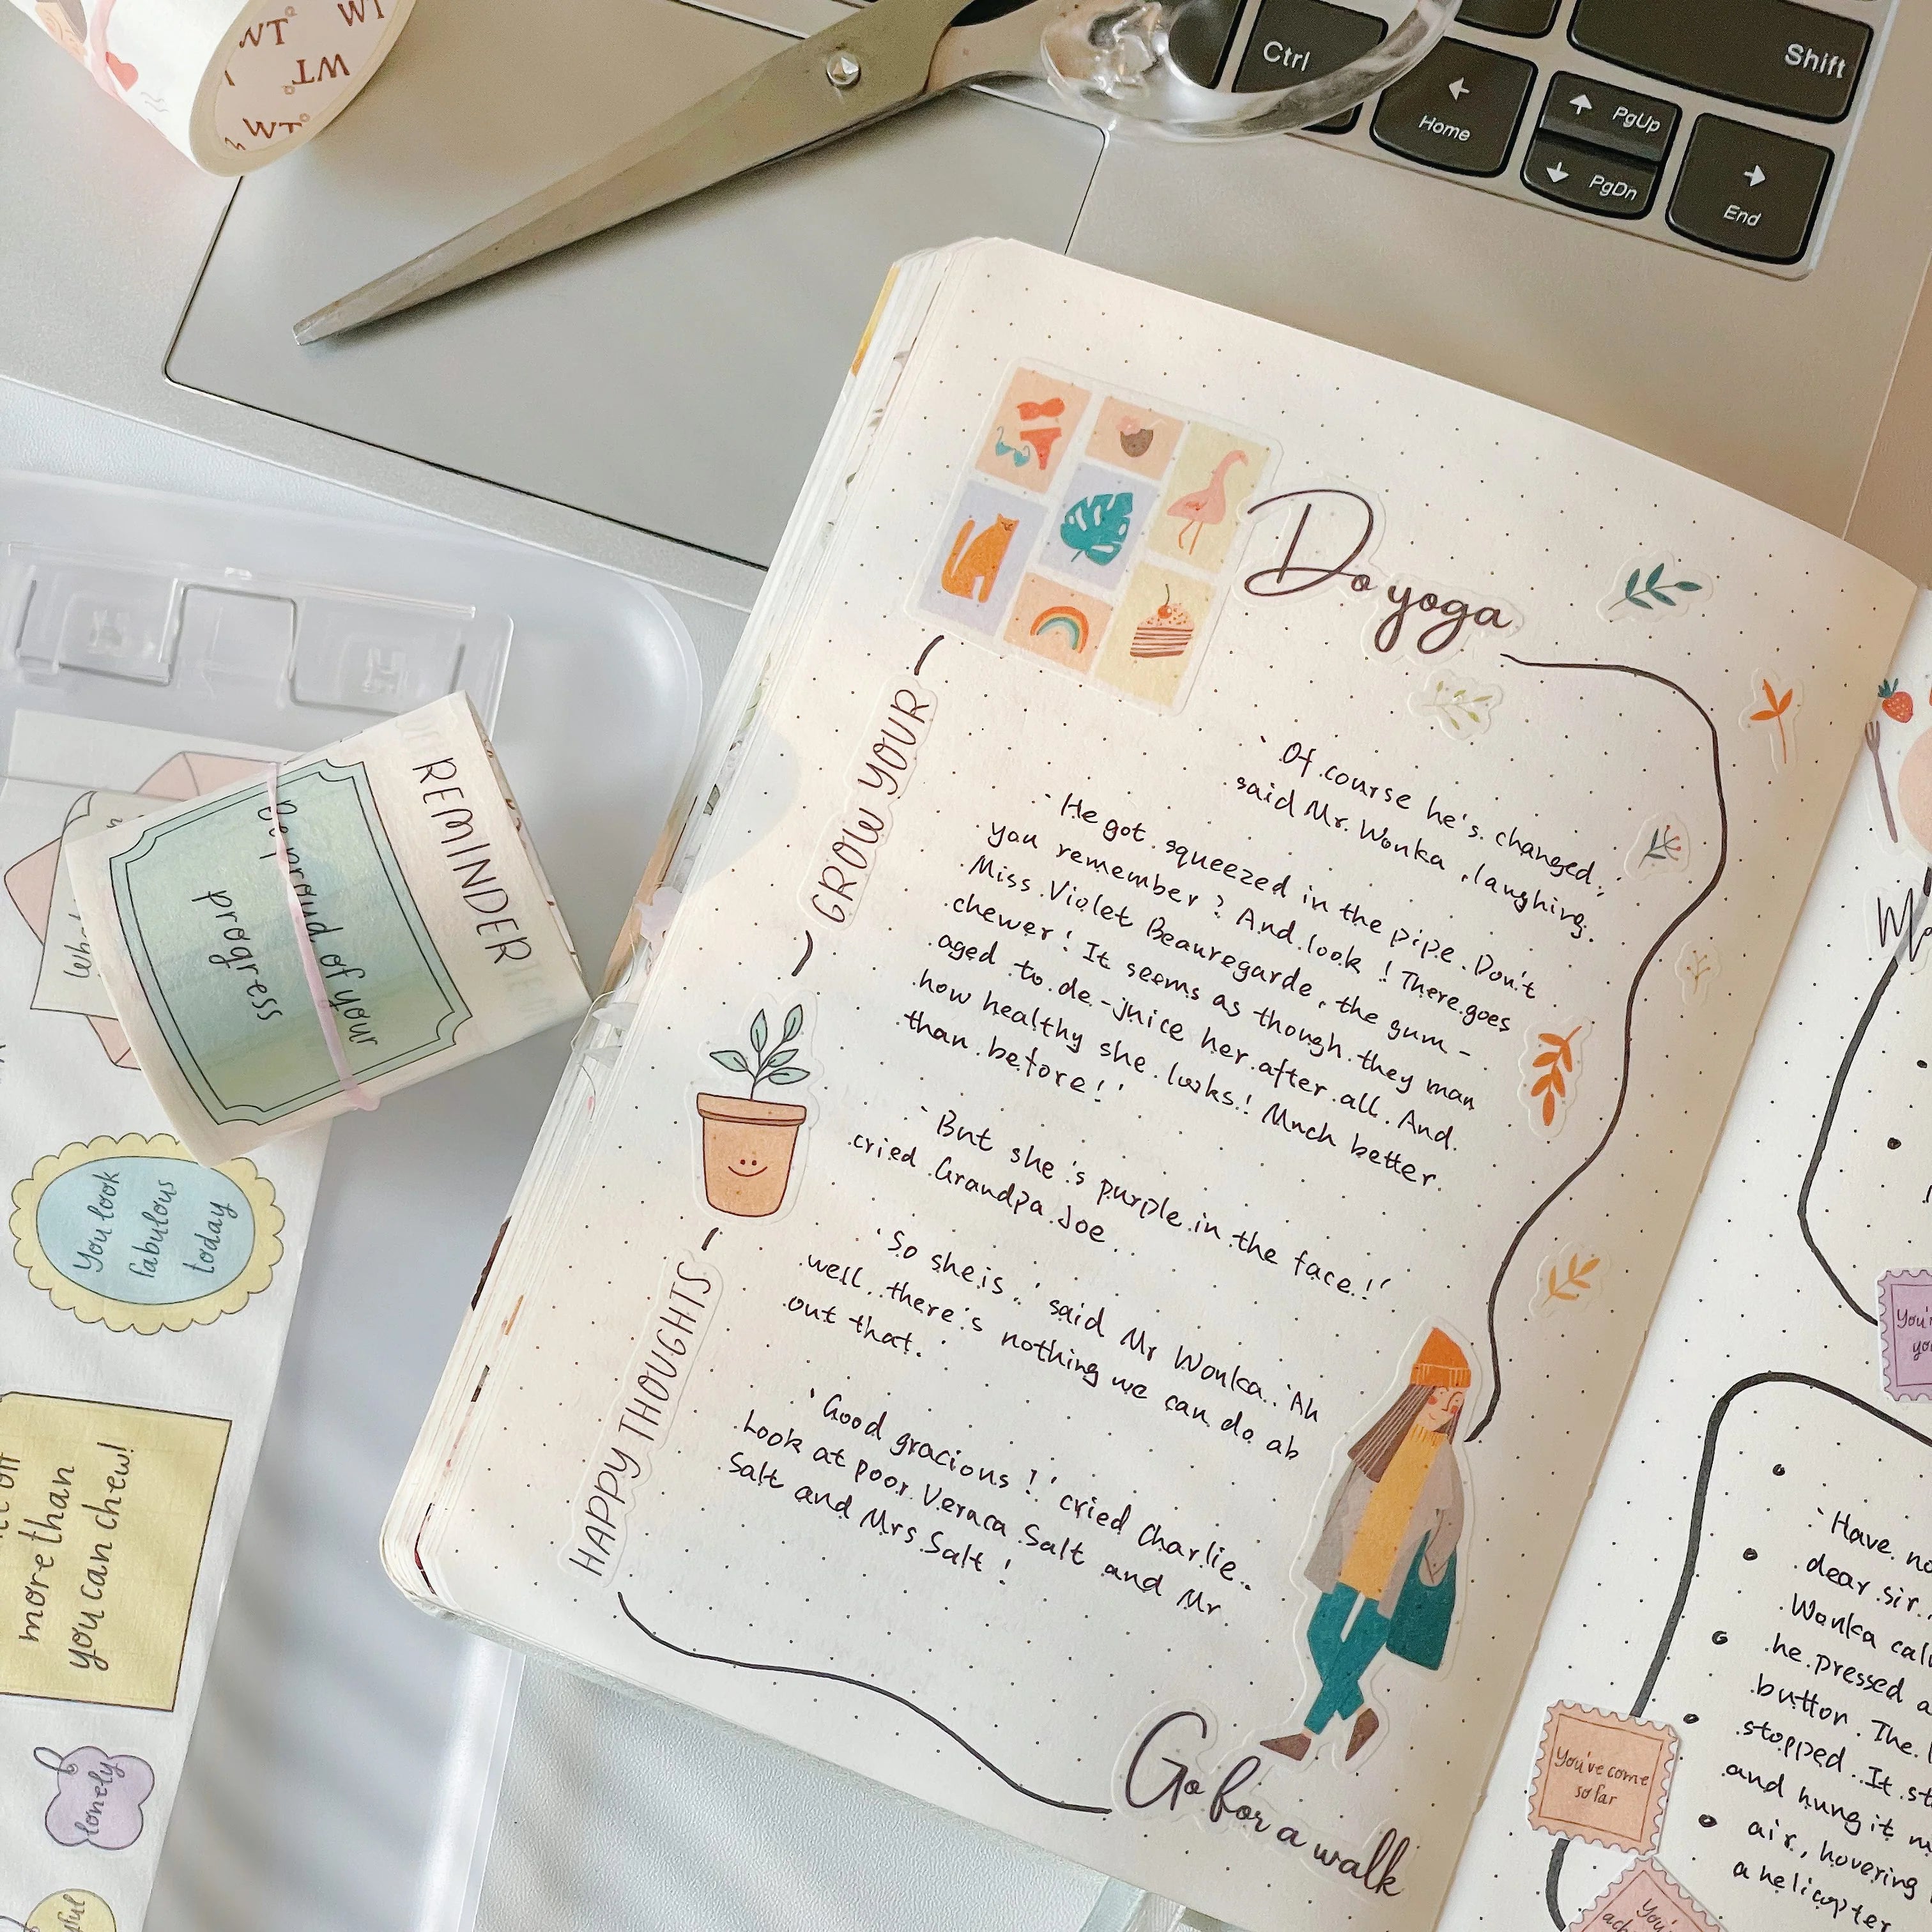 WT
WT
WT
WT
Ctrl
Shift
Home
PgUp
PgDn
End
REMINDER
Be proud of your
progress
You look
fabulous
today
more than
you can chew!
lonely
Do yoga
GROW YOUR
HAPPY THOUGHTS
'Of course he's changed,'
said Mr. Wonka, laughing.
'He got squeezed in the pipe. Don't
you remember? And look! There goes
Miss Violet Beauregarde, the gum-
chewer! It seems as though they man
aged to de-juice her after all. And
how healthy she looks! Much better
than before!'
'But she's purple in the face!'
cried Grandpa Joe.
'So she is,' said Mr Wonka. 'Ah
well, there's nothing we can do ab
out that.
'Good gracious!' cried Charlie.
Look at poor Veraca Salt and Mr
Salt and Mrs Salt!
Go for a walk
'Have no
dear sir.
Wonka
he pressed a
button. The
stopped. It
and hung it
air, hovering
a helicopter
You've come
so far
You're